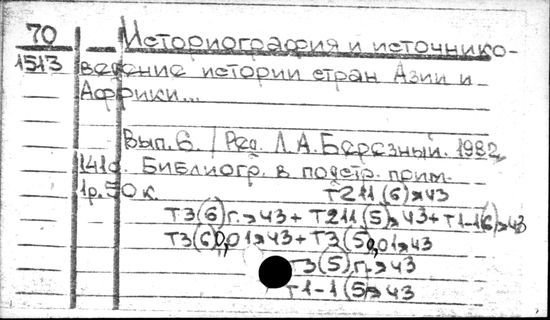 70
1513
Историография и источнико-
ведение истории стран Азии и
Африки...
Вып. 6. / Ред. Л.А. Березный. 1982,
141с. Библиогр. в подстр. прим.
1р.50к.
Т211(6)я43
Т3(6)г.я43 + Т211(5)я43 + Т1-1(6)я43
Т3(6)0,01я43 + Т3(5)0,01я43
Т3(5)г.я43
Т1-1(5)я43